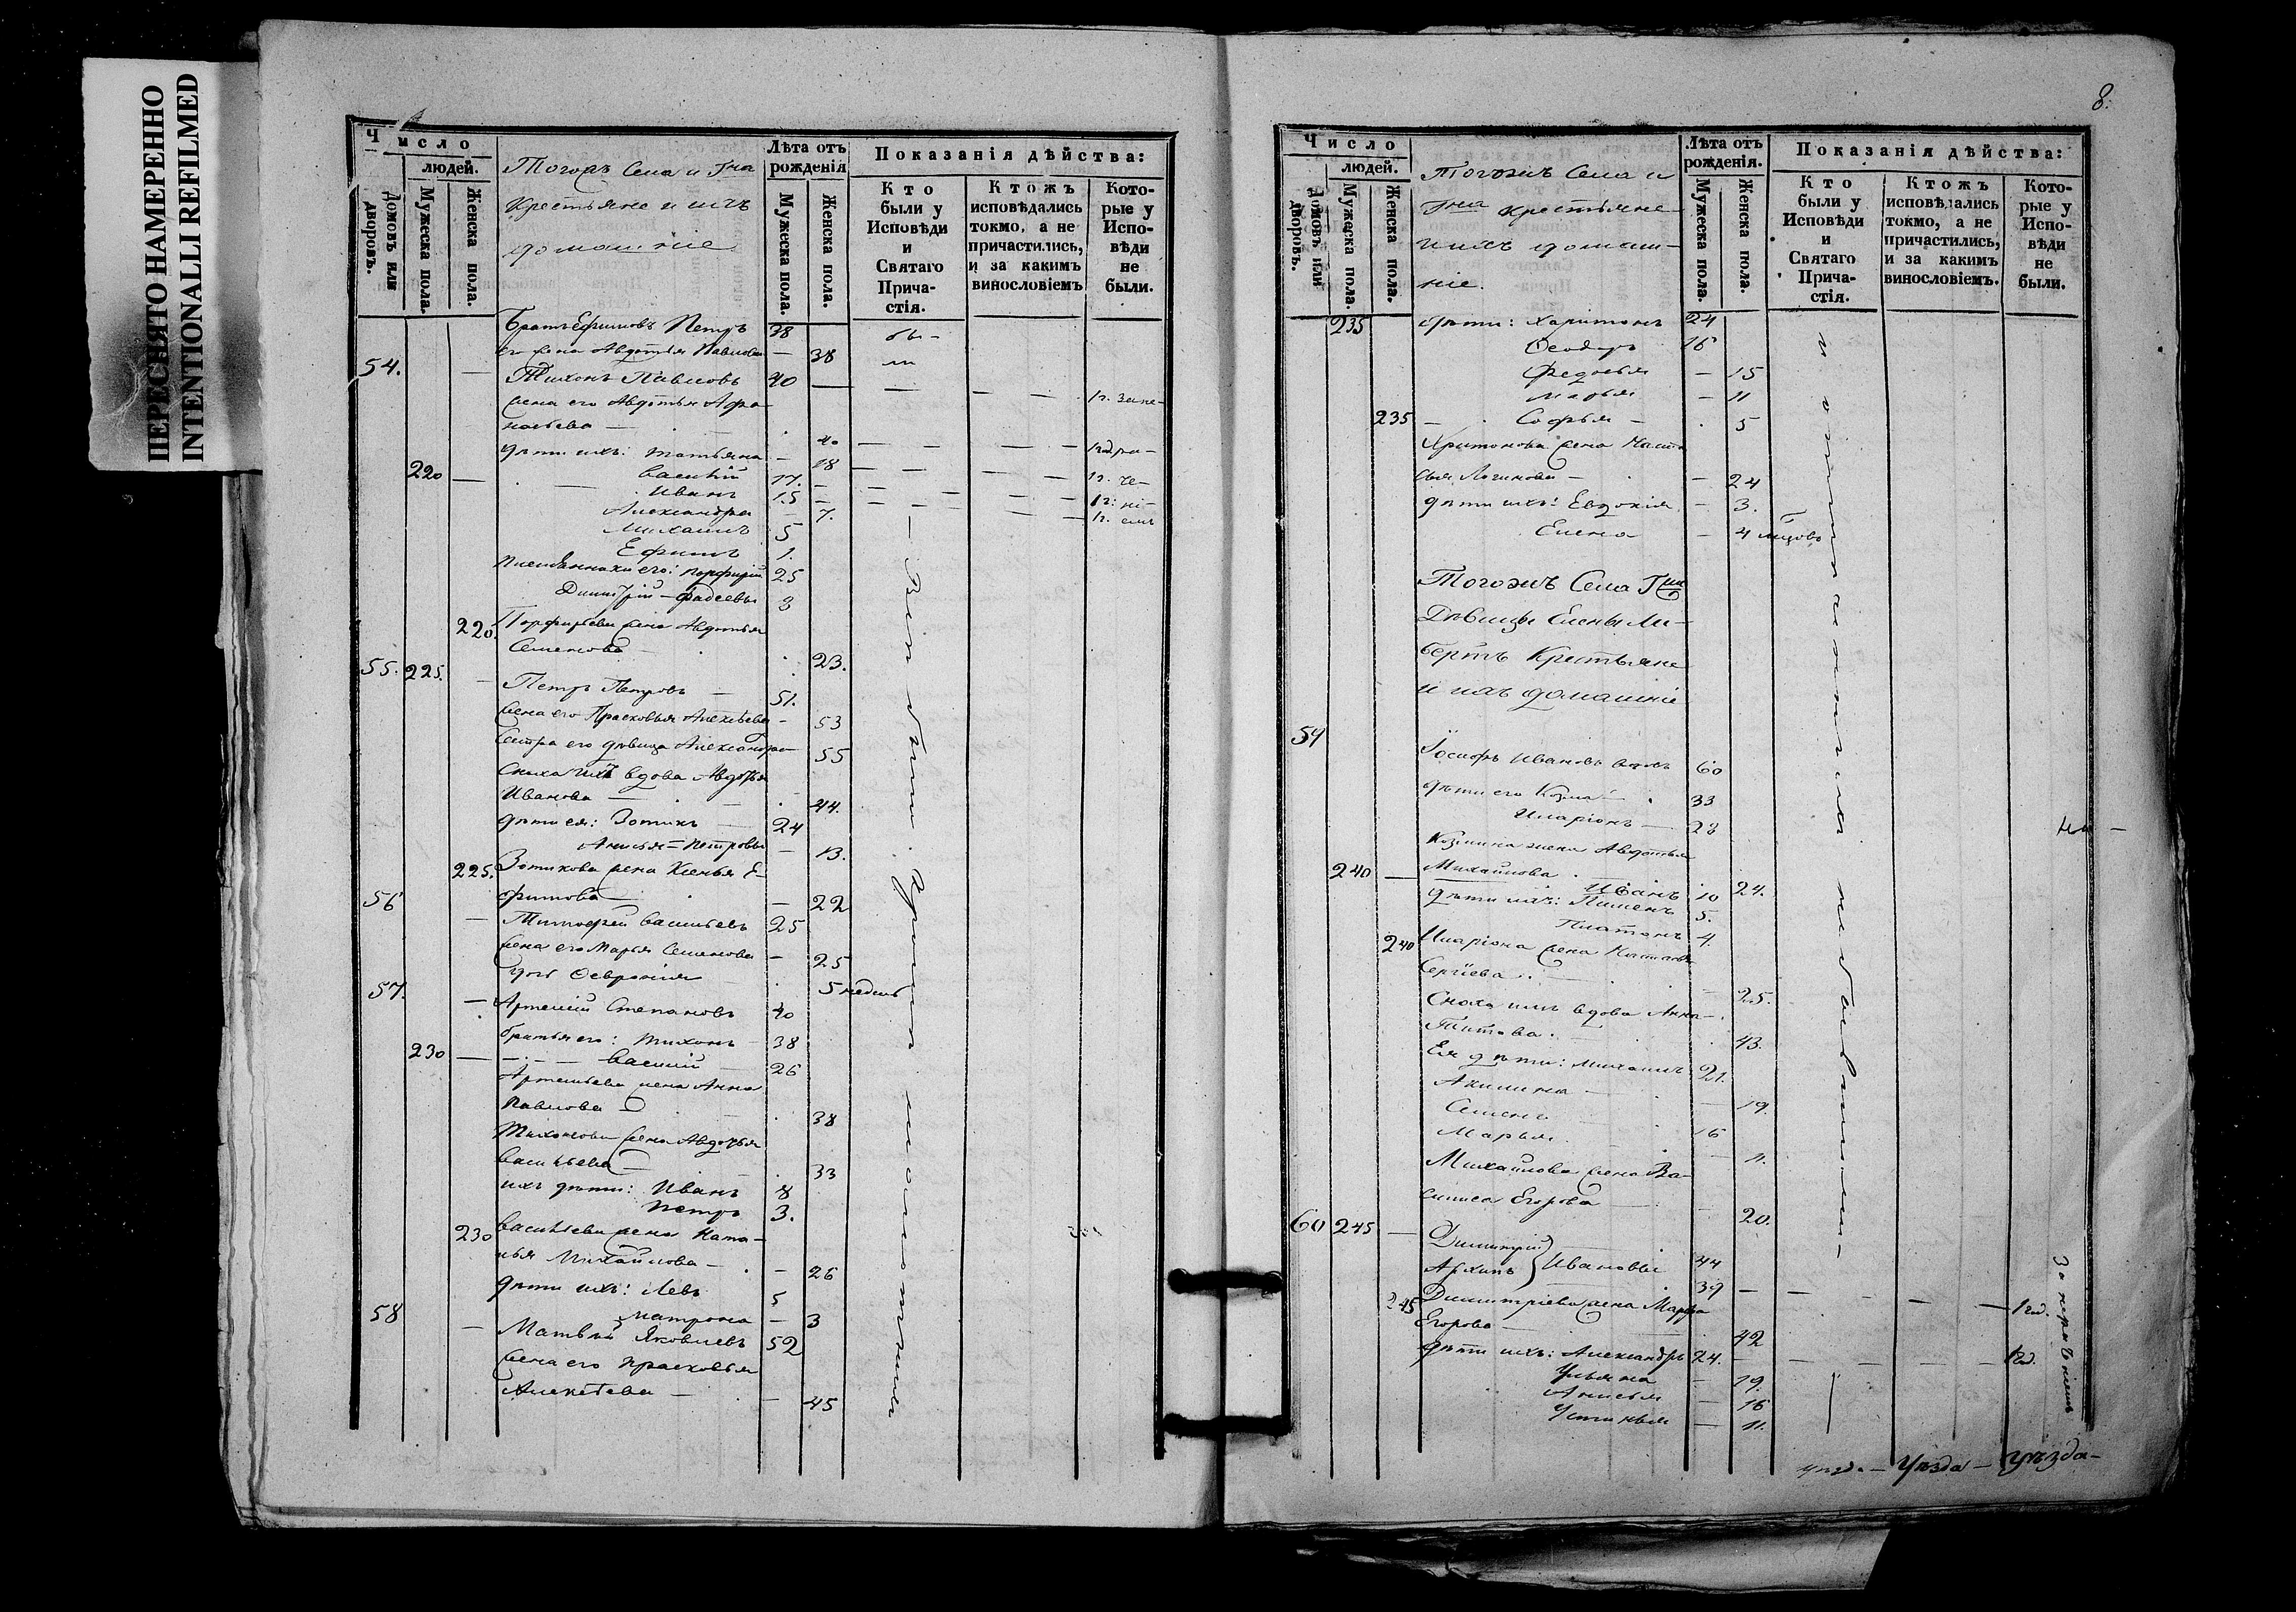 ПЕРЕСНЯТО НАМЕРЕННО
INTENTIONALLI REFILMED
Число
людей.
Домовъ или дворовъ.
Мужеска пола.
Женска пола.
Тогожъ Села и Гна
Крестьяне и ихъ
домашніе
Лѣта отъ рожденія
Мужеска пола.
Женска пола.
Показанія дѣйства:
Кто были у Исповѣди и Святаго Причастія.
Ктожъ исповѣдались токмо, а не причастились, и за какимъ винословіемъ
Которые у Исповѣди не были.
Братъ Ефимовъ Петръ 38
его жена Авдотья Павлова — 38
54. — Тихонъ Павловъ 40
жена его Авдотья Афа-
насьева — 40
дѣти ихъ: Татьяна — 18
220 — Василій 17.
Иванъ 15
Александра — 7.
Михаилъ 5
Ефимъ 1.
Племянники его: Порфирій 25
Димитрій — Фадеевы 3
220. Порфирьева жена Авдотья
Семенова — 23.
55. 225. — Петръ Петровъ — 51.
жена его Прасковья Алексѣева — 53
Сестра его дѣвица Александра 55
Сноха ихъ вдова Авдотья
Иванова — 44.
дѣти ея: Зотикъ — 24
Анисья = Петровы — 13.
225. Зотикова жена Ксенья Е-
фимова — 22
56 — Тимофей Васильевъ 25
жена его Марья Семенова — 25
дочь Февронія 5 недель
57. — Артемій Степановъ 40
братья его: Тихонъ — 38
230 — Василій 26
Артемьева жена Анна
Павлова — 38
Тихонова жена Авдотья
Васильева — 33
ихъ дѣти: Иванъ 8
Петръ 3.
230 Васильева жена Ната-
лья Михайлова — 26
дѣти ихъ: Левъ 5
Матрона — 3
58 — Матвѣй Яковлевъ 52
жена его Прасковья
Алексѣева — 45
бы-
ли
1 г. за не-
1 г. че-
1 г. ні-
1 г. емъ
8.
Число
людей.
Домовъ или дворовъ.
Мужеска пола.
Женска пола.
Тогожъ Села и
Гна крестьяне
и ихъ домаш-
ніе.
Лѣта отъ рожденія.
Мужеска пола.
Женска пола.
Показанія дѣйства:
Кто были у Исповѣди и Святаго Причастія.
Ктожъ исповѣдались токмо, а не причастились, и за какимъ винословіемъ.
Которые у Исповѣди не были.
235 дѣти: Харитонъ 24
Феодоръ 16
Федосья — 15
Марья — 11
235 — Софья — 5
Хритонова жена Наста
сья Логинова — 24
дѣти ихъ: Евдокія — 3.
Елена — 4
Тогожъ Села Гжи
Дѣвицы Елены Ли-
бертъ Крестьяне
и ихъ домашніе
59
Іосифъ Ивановъ вдовъ 60
дѣти его Козма — 33
Иларіонъ — 28
Козмина жена Авдотья
240 — Михайлова . 24.
Иванъ 10
дѣти ихъ: Пименъ 5.
Платонъ 4.
240 Иларіона жена Наталья
Сергѣева . — 25.
Сноха ихъ вдова Анна —
Титова . 43.
Ея дѣти: Михаилъ 21.
Акилина — 19.
Семенъ 16
Марья — 11.
Михайлова жена Ва-
силиса Егорова — 20.
60 245 — Димитрій
Архипъ } Ивановы 44
39
245 Димитріева жена Марфа
Егорова — 42
дѣти ихъ: Александръ 24.
Ульяна — 19.
Анисья — 16
Устинья — 11.
1 год.
1 год.
За нераченіемъ
Уѣзда — Уѣзда — Уѣзда —